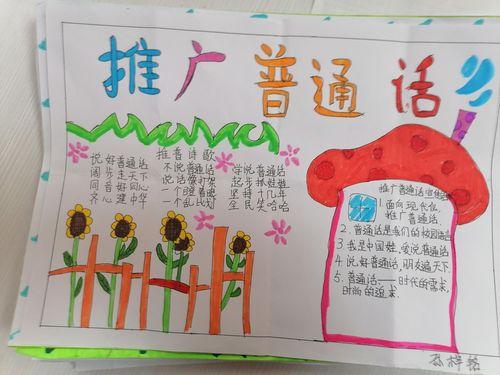 推广普通话
推普诗歌
说好普通话
阔步走天下
同音好同心
齐心建中华
不说普通话
说话像打架
一个瞪着眼
一个乱比划
学说普通
起步抓娃娃
坚持十几年
全民笑哈哈
推广普通话宣传语
1.面向现代化,
推广普通话.
2.普通话是我们的校园语言
3.我是中国娃,爱说普通话
4.说好普通话,朋友遍天下.
5.普通话——时代的需求,
时尚的追求.